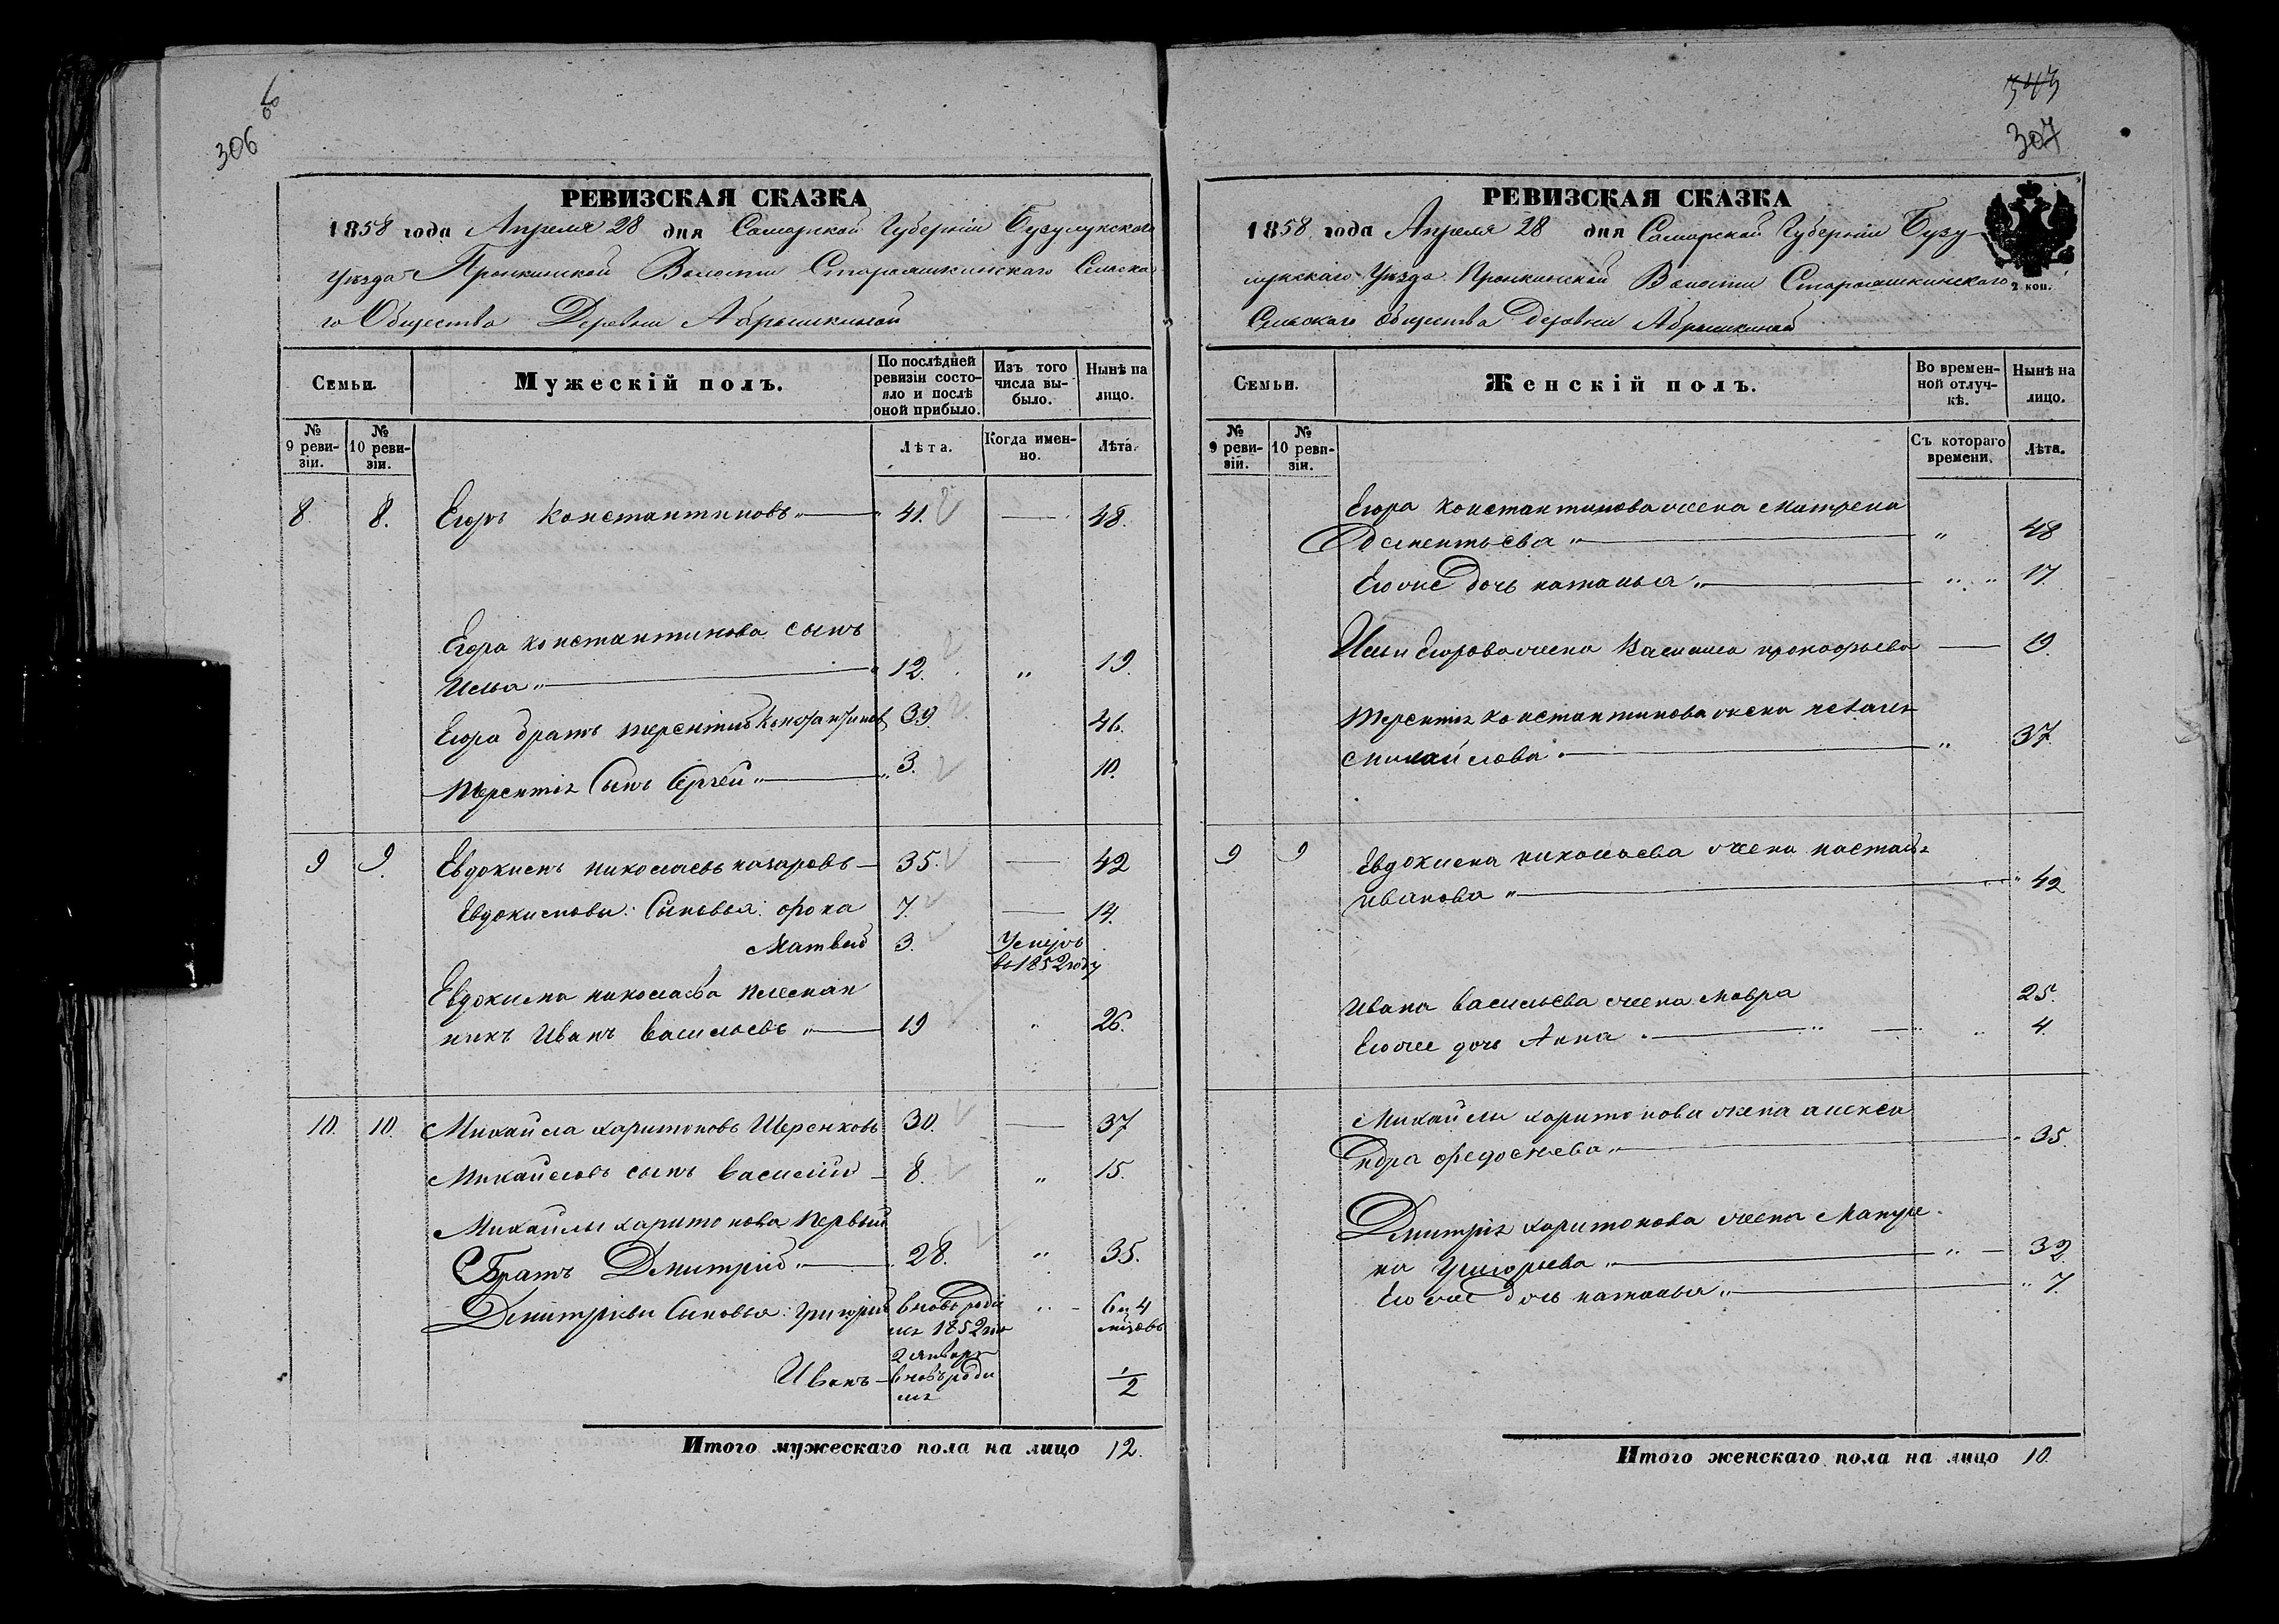 6
306
РЕВИЗСКАЯ СКАЗКА
1858 года Апреля 28 дня Самарской Губерніи Бузулукскаго
уезда Пронкинской Волости Стараяшкинскаго Сельска
го Общества Деревни Абрышкиной
Семьи.
Мужескій полъ.
По послѣдней ревизіи состояло и послѣ оной прибыло.
Изъ того числа выбыло.
Нынѣ на лицо.
№ 9 ревизіи.
№ 10 ревизіи.
Лѣта.
Когда именно.
Лѣта.
8. 8. Егоръ Константиновъ 41. 48.
Егора Константинова сынъ
Илья 12. " 19.
Егора братъ терентий Константинов 39 46.
терентія Сынъ Сергей 3. 10.
9 9. Евдокимъ николаевъ назаровъ 35. 42
Евдокимовы: Сыновья: фрока 7. 14.
Матвей 3. Умеръ
въ 1852 году
Евдокима николаева племян
никъ Иванъ васильевъ 19 " 26.
10. 10. Михайла харитоновъ Шеренковъ 30. 37
Михайловъ сынъ василий 8. " 15.
Михайлы харитонова первый
Братъ Дмитрій 28. " 35.
Дмитріевы Сыновья: григорій вновь роди " 6 и 4
лся 1852 го месяцовъ
2 января
Иванъ вновь роди 1/2
лся
Итого мужескаго пола на лицо 12.
343
307
РЕВИЗСКАЯ СКАЗКА
1858 года Апреля 28 дня Самарской Губерніи Бузу
лукскаго Уезда Пронкинской Волости Стараяшкинскаго
2 коп.
Сельскаго Общества Деревни Абрышкиной
Семьи.
Женскій полъ.
Во временной отлучкѣ.
Нынѣ на лицо.
№ 9 ревизіи.
№ 10 ревизіи.
Съ котораго времени.
Лѣта.
Егора Константинова жена матрена
Дементьева " 48
Его же дочь наталья " " 17.
Ильи Егорова жена Василиса прокофьева 19.
терентія константинова жена пелаген
михайлова " 37.
9 9 Евдокима николаева жена настасья
иванова " 42
Ивана васильева жена мавра 25.
Его же дочь Анна " " 4.
Михайлы харитонова жена алекса
ндра федосеева " 35.
Дмитрія харитонова жена Матре
на григорьева " 32.
Его же дочь наталья " 7.
Итого женскаго пола на лицо 10.